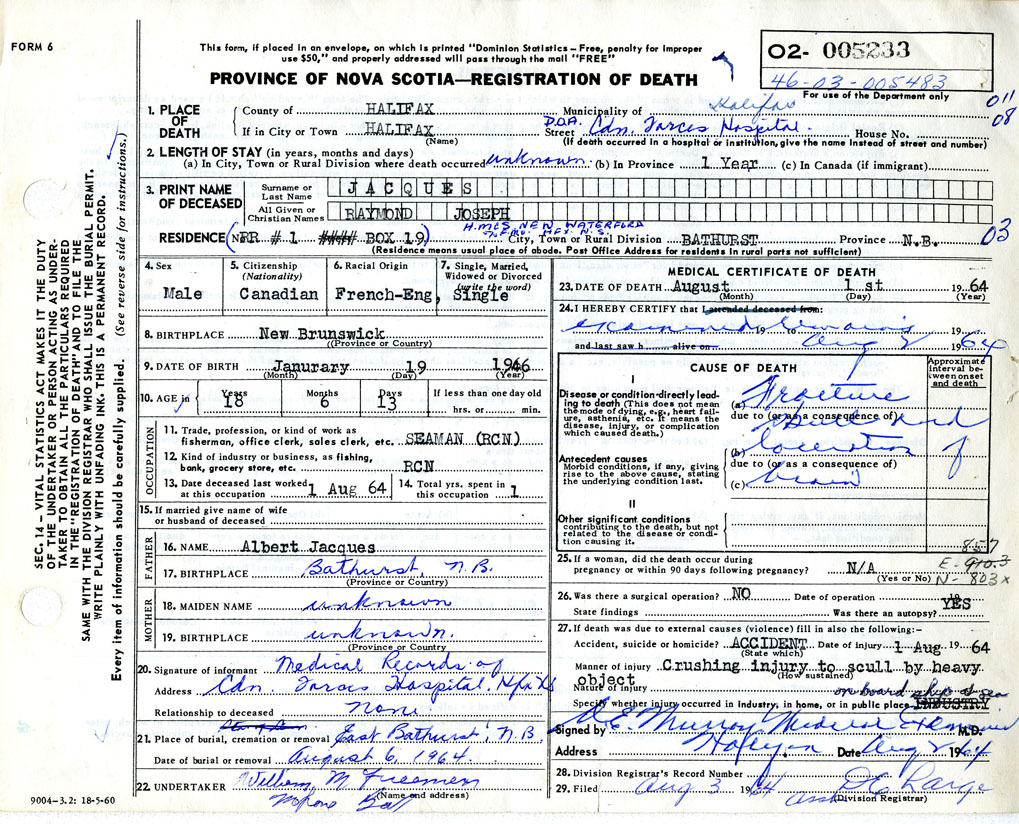 FORM 6
This form, if placed in an envelope, on which is printed "Dominion Statistics - Free, penalty for improper
use $50," and properly addressed will pass through the mail "FREE"
PROVINCE OF NOVA SCOTIA—REGISTRATION OF DEATH
02- 005233
46-03-005483
For use of the Department only
011
08
1. PLACE OF DEATH
County of HALIFAX Municipality of Halifax
If in City or Town HALIFAX (Name) Street D.O.A. Cdn. Forces Hospital. House No.
(If death occurred in a hospital or institution, give the name instead of street and number)
2. LENGTH OF STAY (in years, months and days)
(a) In City, Town or Rural Division where death occurred unknown. (b) In Province 1 Year (c) In Canada (if immigrant)
3. PRINT NAME OF DECEASED
Surname or Last Name JACQUES
All Given or Christian Names RAYMOND JOSEPH
H.M.C.S. NEW WATERFORD
RESIDENCE (No RR #1 #### BOX 19) City, Town or Rural Division BATHURST Province N.B. 03
(Residence means usual place of abode. Post Office Address for residents in rural parts not sufficient)
4. Sex Male
5. Citizenship (Nationality) Canadian
6. Racial Origin French-Eng,
7. Single, Married, Widowed or Divorced (write the word) Single
8. BIRTHPLACE New Brunswick
(Province or Country)
9. DATE OF BIRTH Janurary 19 1946
(Month) (Day) (Year)
10. AGE in Years 18 Months 6 Days 13 If less than one day old hrs. or min.
OCCUPATION
11. Trade, profession, or kind of work as
fisherman, office clerk, sales clerk, etc. SEAMAN (RCN)
12. Kind of industry or business, as fishing,
bank, grocery store, etc. RCN
13. Date deceased last worked at this occupation 1 Aug 64
14. Total yrs. spent in this occupation 1
15. If married give name of wife
or husband of deceased
FATHER
16. NAME Albert Jacques
17. BIRTHPLACE Bathurst, N.B.
(Province or Country)
MOTHER
18. MAIDEN NAME unknown
19. BIRTHPLACE unknown.
(Province or Country)
20. Signature of informant Medical Records of
Address Cdn. Forces Hospital. Hfx NS
Relationship to deceased none
21. Place of burial, cremation or removal East Bathurst, N.B.
Date of burial or removal August 6, 1964
22. UNDERTAKER William M
(Name and address)
9004-3.2: 18-5-60
MEDICAL CERTIFICATE OF DEATH
23. DATE OF DEATH August 1 st 1964
(Month) (Day) (Year)
24. I HEREBY CERTIFY that I attended deceased from:
examined 19 to remains 19
and last saw h alive on Aug 2 1964
CAUSE OF DEATH
Approximate interval between onset and death
I
Disease or condition directly leading to death (This does not mean the mode of dying, e.g., heart failure, asthenia, etc. It means the disease, injury, or complication which caused death.)
(a) Fracture
due to (or as a consequence of)
skull and
Antecedent causes
Morbid conditions, if any, giving rise to the above cause, stating the underlying condition last.
(b) laceration of
due to (or as a consequence of)
(c) brain
II
Other significant conditions
contributing to the death, but not related to the disease or condition causing it.
857
25. If a woman, did the death occur during
pregnancy or within 90 days following pregnancy? N/A (Yes or No)
E-910.3
N-803x
26. Was there a surgical operation? NO Date of operation 19
State findings Was there an autopsy? YES
27. If death was due to external causes (violence) fill in also the following:-
Accident, suicide or homicide? ACCIDENT (State which) Date of injury 1 Aug 1964
Manner of injury Crushing injury to scull by heavy
(How sustained)
object
Nature of injury on board ship at sea
Specify whether injury occurred in industry, in home, or in public place INDUSTRY
Signed by Murray Medical Examiner M.D.
Address Halifax Date Aug 2 1964
28. Division Registrar's Record Number
29. Filed Aug 3 1964 D E Large
(Division Registrar)
SEC. 14 - VITAL STATISTICS ACT MAKES IT THE DUTY
OF THE UNDERTAKER OR PERSON ACTING AS UNDER-
TAKER TO OBTAIN ALL THE PARTICULARS REQUIRED
IN THE "REGISTRATION OF DEATH" AND TO FILE THE
SAME WITH THE DIVISION REGISTRAR WHO SHALL ISSUE THE BURIAL PERMIT.
WRITE PLAINLY WITH UNFADING INK. THIS IS A PERMANENT RECORD.
Every item of information should be carefully supplied. (See reverse side for instructions.)